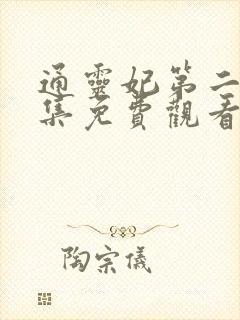 通靈妃第二
集免費觀看
陶宗儀